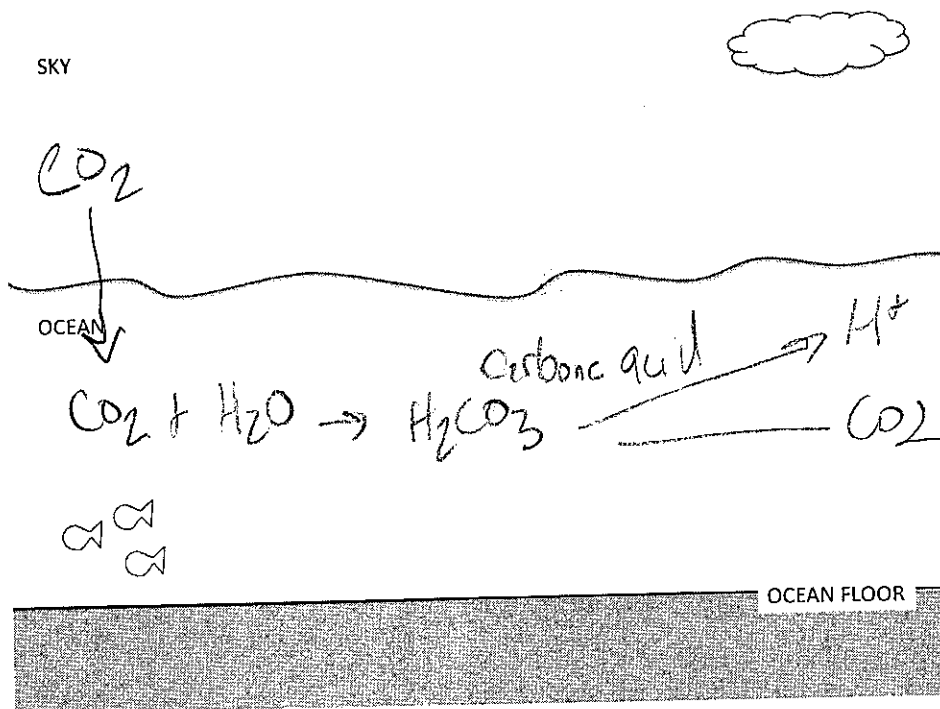 SKY
CO2
OCEAN
carbonc acid
H+
CO2 + H2O → H2CO3
CO2
OCEAN FLOOR